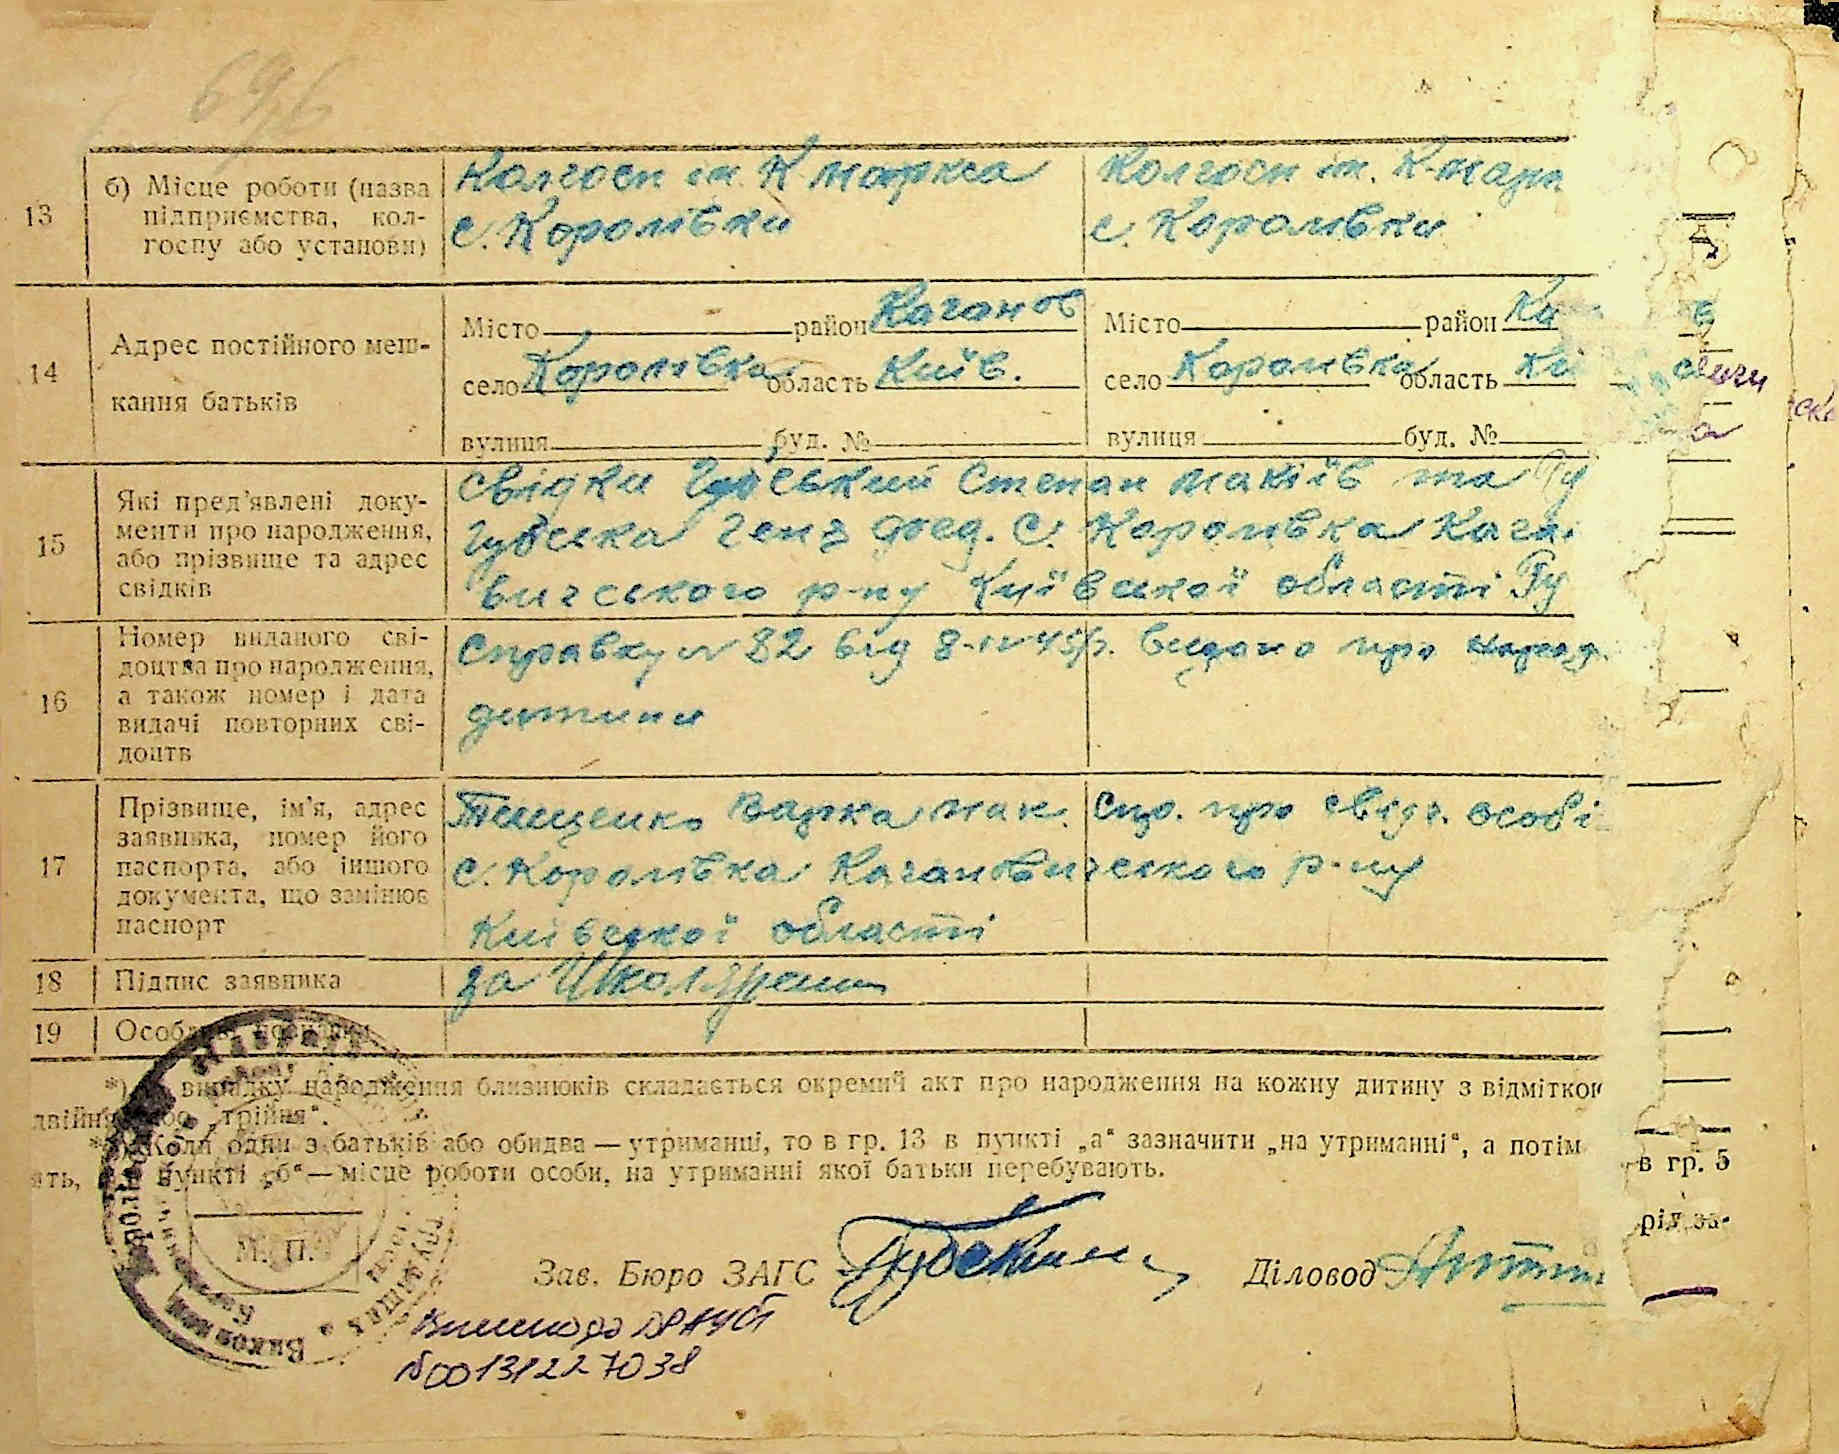 6976
13
б) Місце роботи (назва
підприємства, кол-
госпу або установи)
Колгосп ім. К Маркса
с. Королівки
Колгосп ім. К-Марк
с. Королівки
14
Адрес постійного меш-
кання батьків
Місто район Каганов
село Королівка область Київ.
вулиця буд. №
Місто район Ка
село Королівка область Ки
вулиця буд. №
15
Які пред'явлені доку-
менти про народження,
або прізвище та адрес
свідків
свідки Губський Степан та Гу
Губська с. Королівка Кага
вичського р-ну Київської області Гу
16
Номер виданого сві-
доцтва про народження,
а також номер і дата
видачі повторних сві-
доцтв
Справку № 82 від видано про народ.
дитини
17
Прізвище, ім'я, адрес
заявника, номер його
паспорта, або іншого
документа, що замінює
паспорт
Тищенко Варка Мак. Спр. про свідч. особи
с. Королівка Кагановичського р-ну
Київської області
18
Підпис заявника
за
19
Особливі
*) випадку народження близнюків складається окремий акт про народження на кожну дитину з відміткою
двійня або „трійня“.
Коли один з батьків або обидва — утриманці, то в гр. 13 в пункті „а“ зазначити „на утриманні“, а потім
ять, пункті „б“ — місце роботи особи, на утриманні якої батьки перебувають.
в гр. 5
М. П.
Зав. Бюро ЗАГС
Діловод
№00131227038